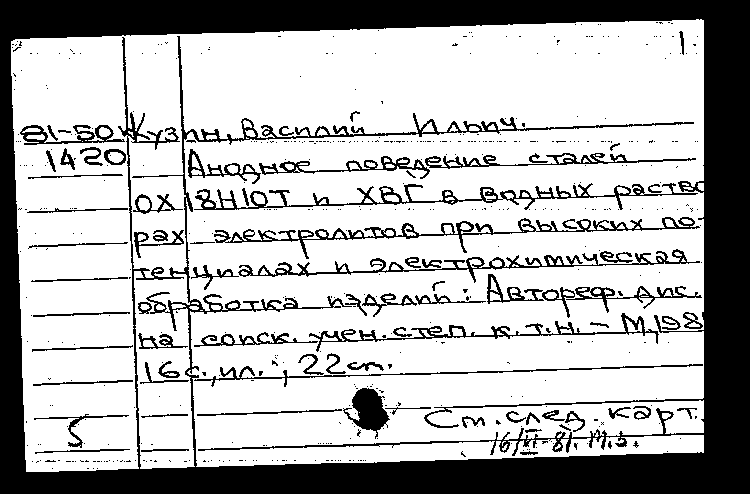 1
81-50к Кузин, Василий Ильич.
1420 Анодное поведение сталей
ОХ18Н10Т и ХВГ в водных раство
рах электролитов при высоких по-
тенциалах и электрохимическая
обработка изделий: Автореф. дис.
на соиск. учен. степ. к.т.н. - М, 198
16 с., ил. ; 22 см.
5 См. след. карт.
16/VI-81. М.З.